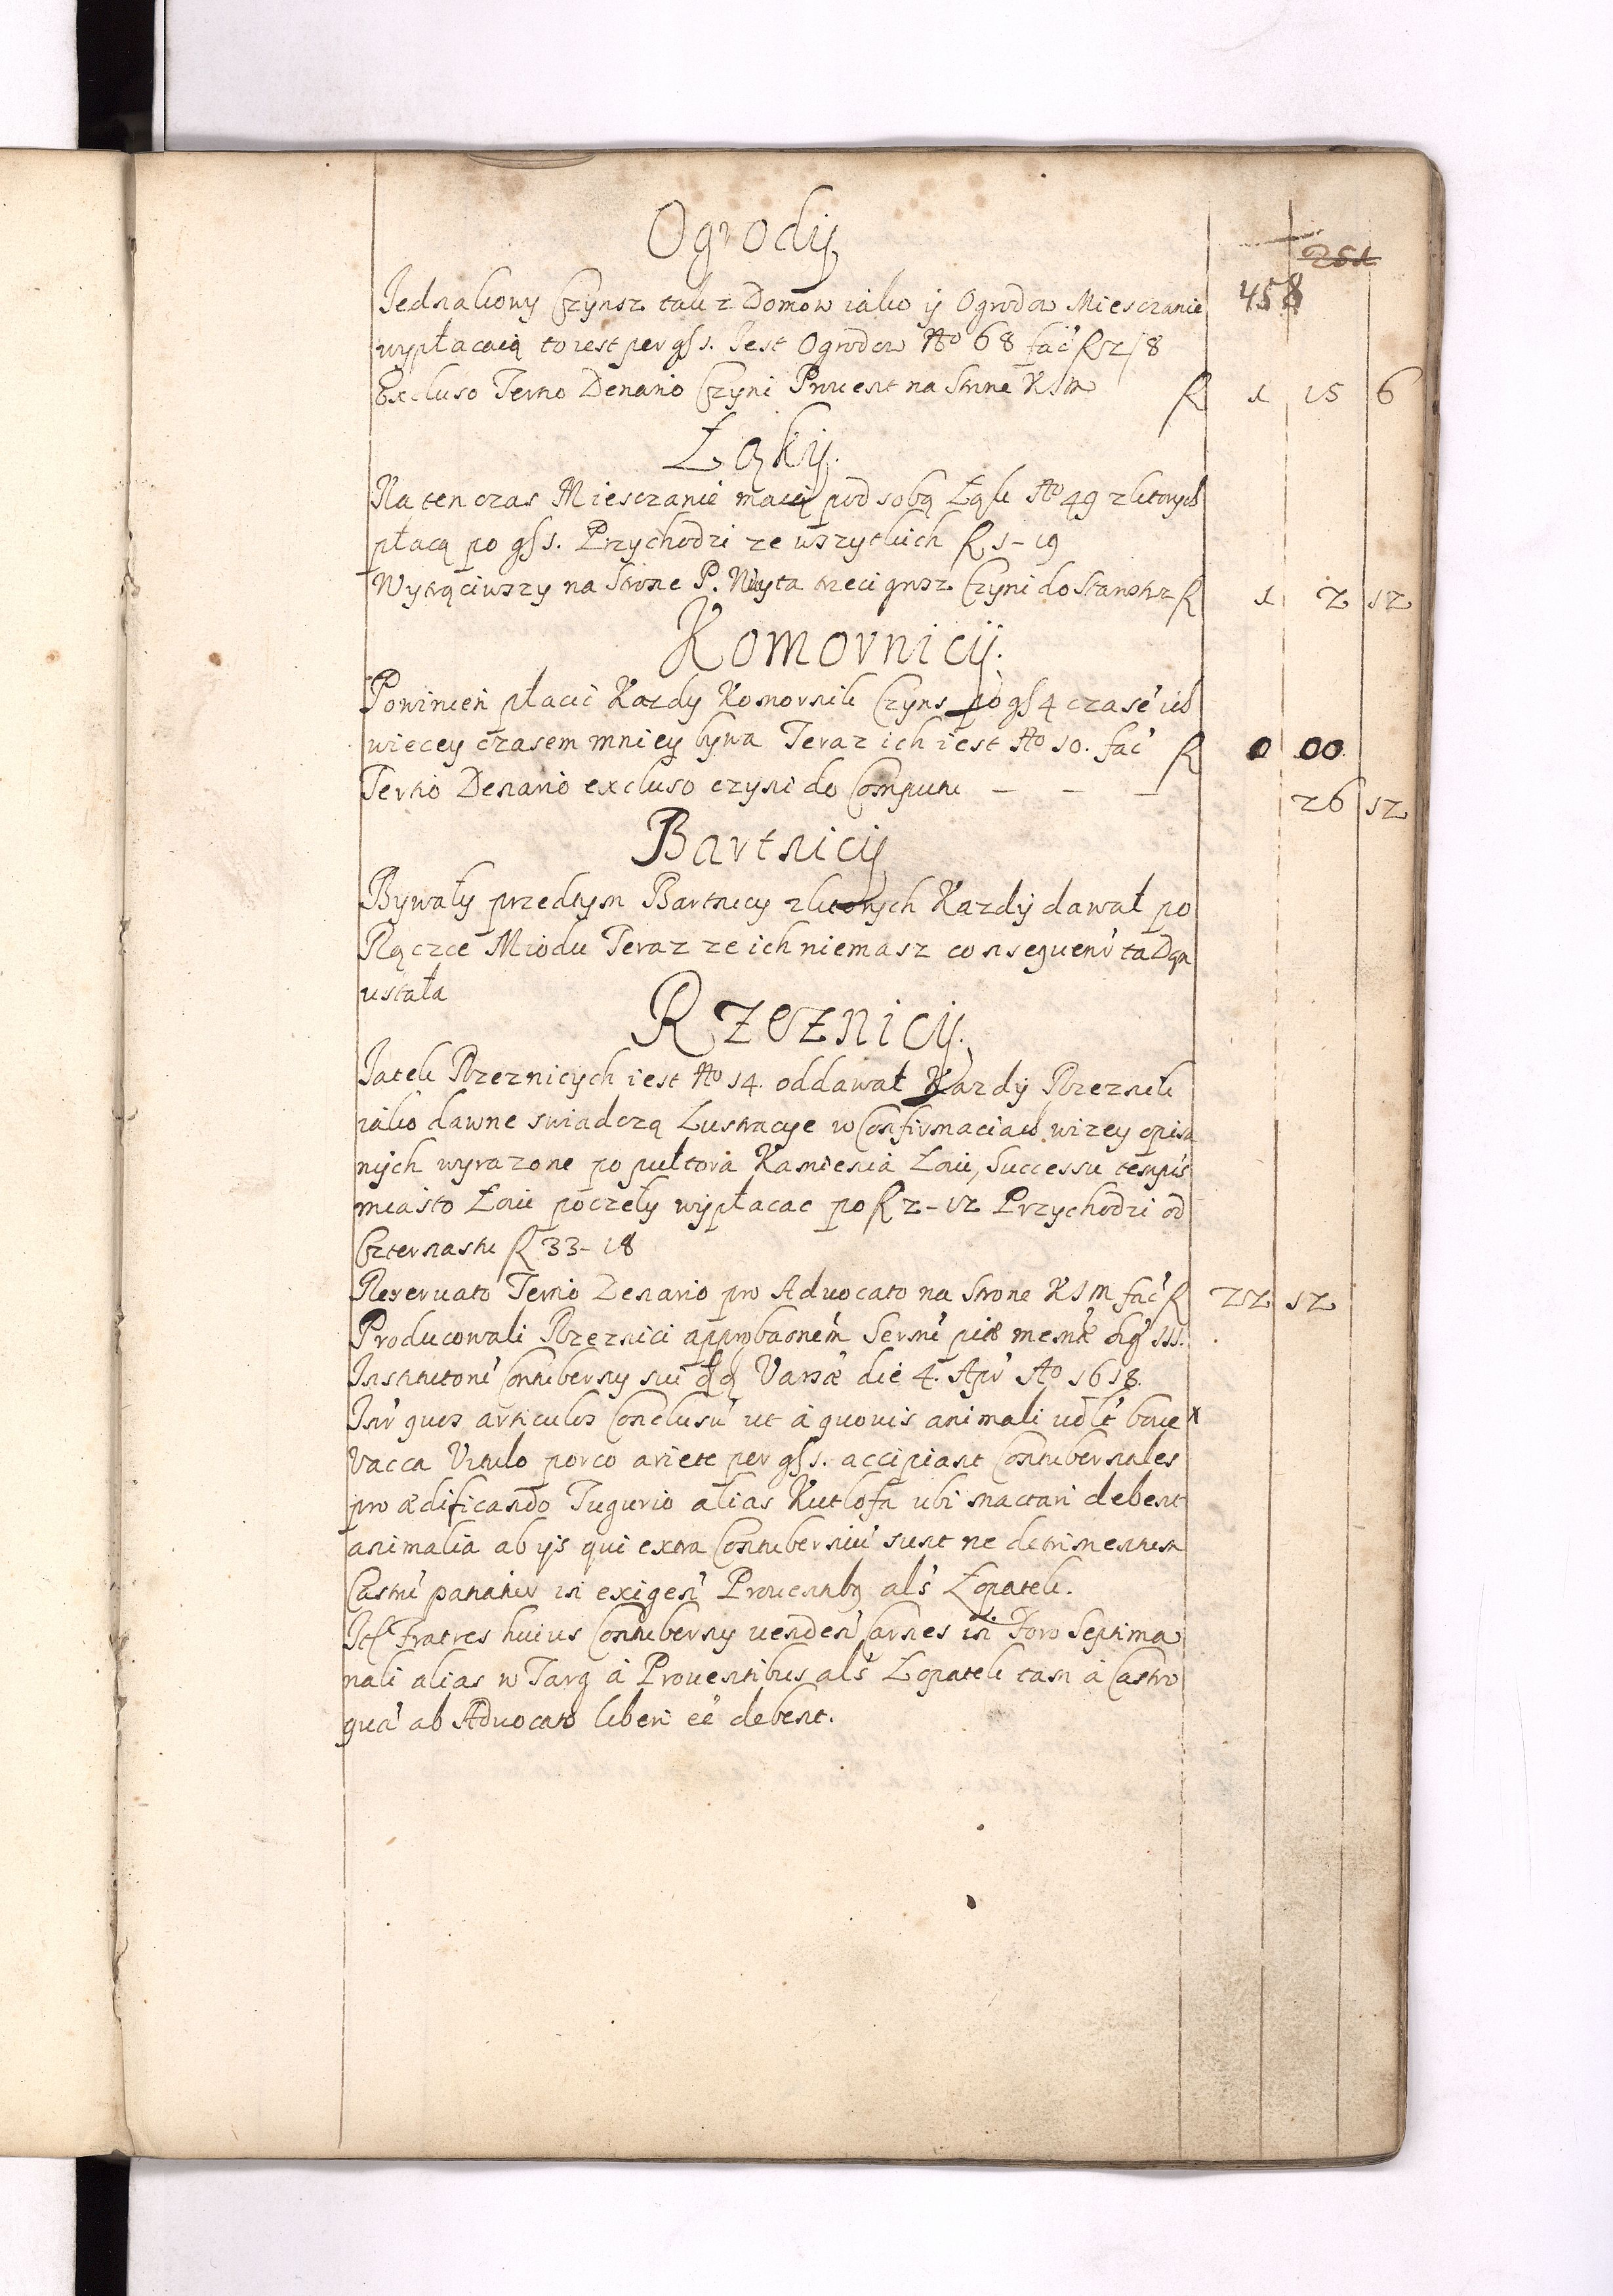 Ogrody
251
458
Jednakowy Czynsz tak z Domow iako ÿ Ogrodow Miesczanie
wypłacaią to iest per gs 1. Jest Ogrodow No 68 fac R 2/8
Excluso Terno Denario Czyni Prouent na Strone KJM R 1 15 6
Łąky.
Na ten czas Miesczanie maią pod sobą Łąk No 49 z ktorych
płacą po gs 1. Przychodzi ze wszytkich R 1-19
Wytrąciwszy na Strone P. Woyta trzeci grosz Czyni do Starostwa R 1 2 12
Komornicy.
Powinien płacic Kazdy Komornik Czyns po gs 4 czasē ich
wiecey czasem mniey bywa Teraz ich iest No 10. fac R 0 00.
Tertio Denario excluso czyni do Computu – – – 26 12
Bartnicy
Bywały przedtym Bartnicy z ktorych Kazdÿ dawał po
Rączce Miodu Teraz ze ich niemasz consequent ta Dan
ustała
Rzeznicy.
Jatek Rzeznicÿch iest No 14. oddawał Kazdÿ Rzeznik
iako dawne swiadczą Lustracye w Confirmaciach wizey opisa
nÿch wyrazone po pułtora Kamienia Łoiu, Successu tempis
miasto Łoiu poczeły wÿpłacac po R 2-12 Przychodzi od
Czternastu R 33-18
Reseruato Tertio Denario pro Aduocato na Strone KJM fac R 22 12
Producowali Rzeznici approbaonem Sermi piæ menæ Sig III.
Institutoni Contuberny sui Varsæ die 4. Apr Ao 1618.
Intr quos articulos Conclusū ut à quouis animali boue
Vacca Vitulo porco ariete per gs 1. accipiant Contubernales
pro ædificando Tugurio alias Kutlofa ubi mactari debent
animalia ab ÿs qui extra Contuberniū sunt ne detrimentum
Castrū patiatur in exigen Prouentbq als Łopatek.
Fratres huius Contuberny uenden Carnes in Foro Septima
nali alias w Targ à Prouentibus als Łopatek tam à Castro
quā ab Aduocato liberi eē debent.